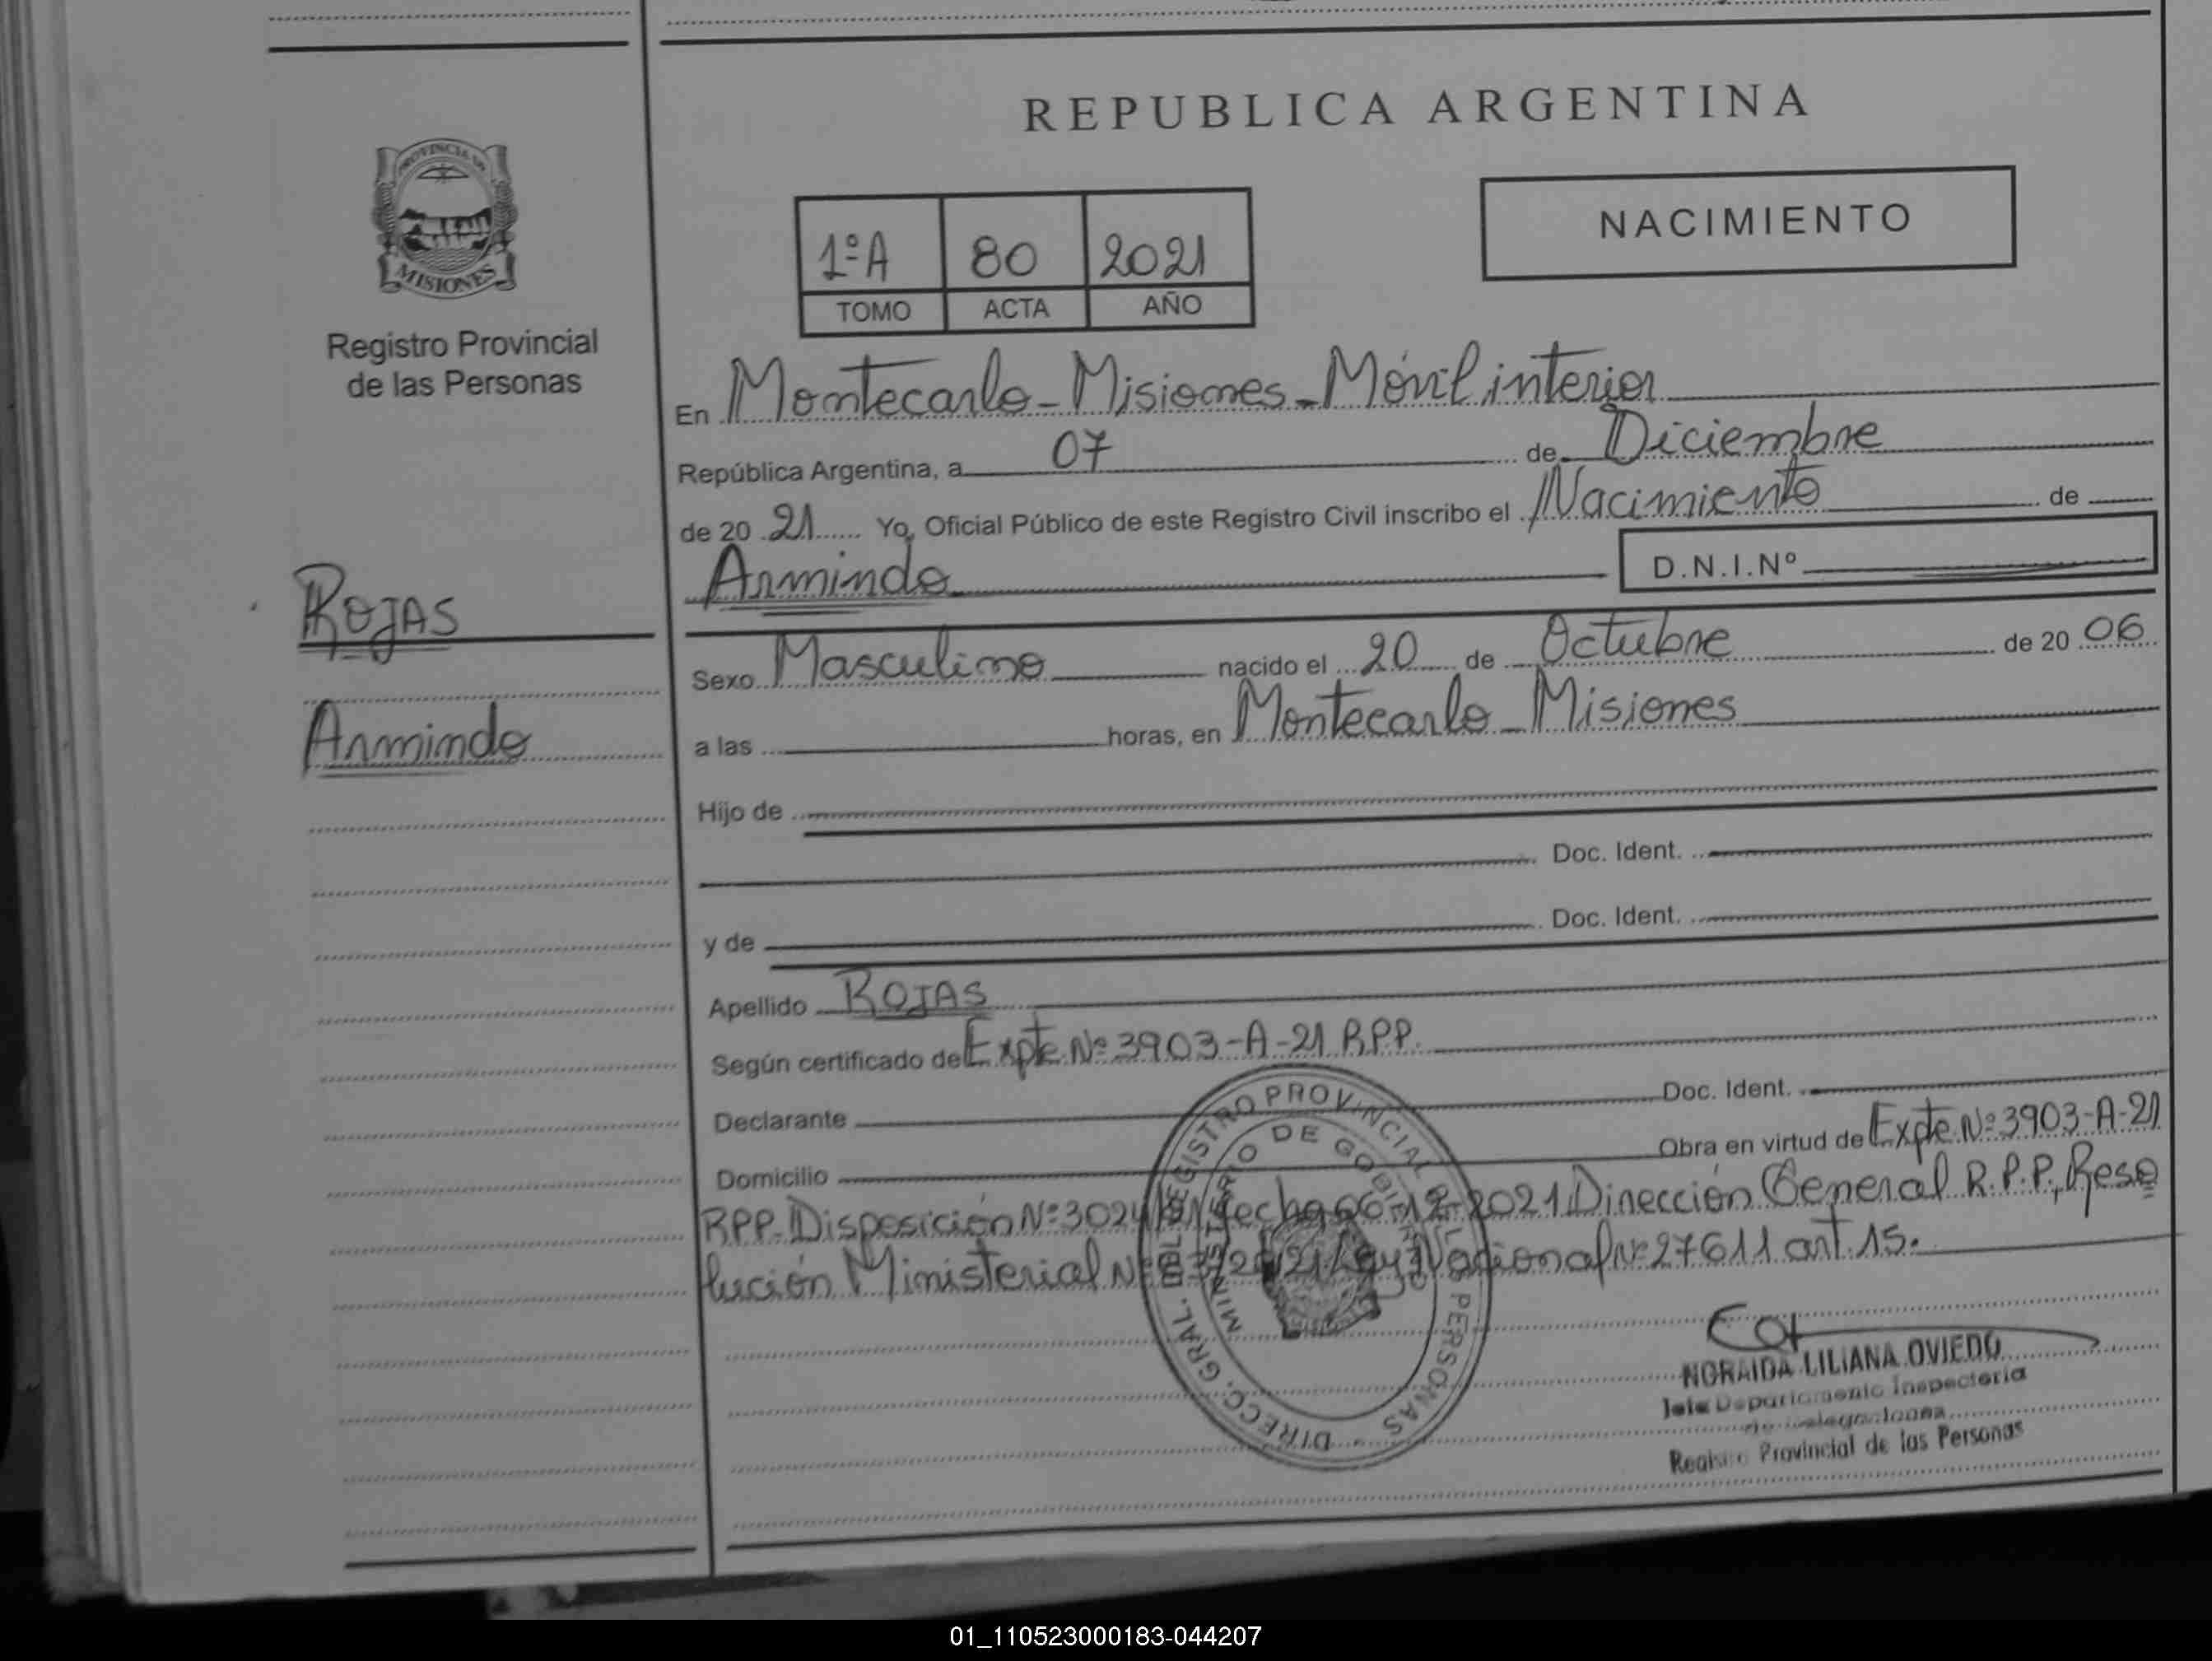 REPUBLICA ARGENTINA
PROVINCIA DE
MISIONES
Registro Provincial
de las Personas
NACIMIENTO
1ºA 80 2021
TOMO ACTA AÑO
En Montecarlo - Misiones - Móvil interior
República Argentina, a 07 de Diciembre
de 20 21 Yo, Oficial Público de este Registro Civil inscribo el Nacimiento de
Armindo D.N.I.Nº
ROJAS
Armindo
Sexo Masculino nacido el 20 de Octubre de 20 06
a las horas, en Montecarlo - Misiones
Hijo de
Doc. Ident.
y de Doc. Ident.
Apellido ROJAS
Según certificado de Expte. Nº 3903-A-21 RPP.
Declarante Doc. Ident.
Domicilio Obra en virtud de Expte. Nº 3903-A-21
RPP. Disposición Nº 3024 fecha 06-12-2021 Dirección General R.P.P., Reso
lución Ministerial Nº Ley Nacional Nº 27611 art. 15.
DIRECC. GRAL. DEL REGISTRO PROVINCIAL PERSONAS
MINISTERIO DE
NORAIDA LILIANA OVIEDO
Jefe Departamento Inspectoría
Registro Provincial de las Personas
01_110523000183-044207